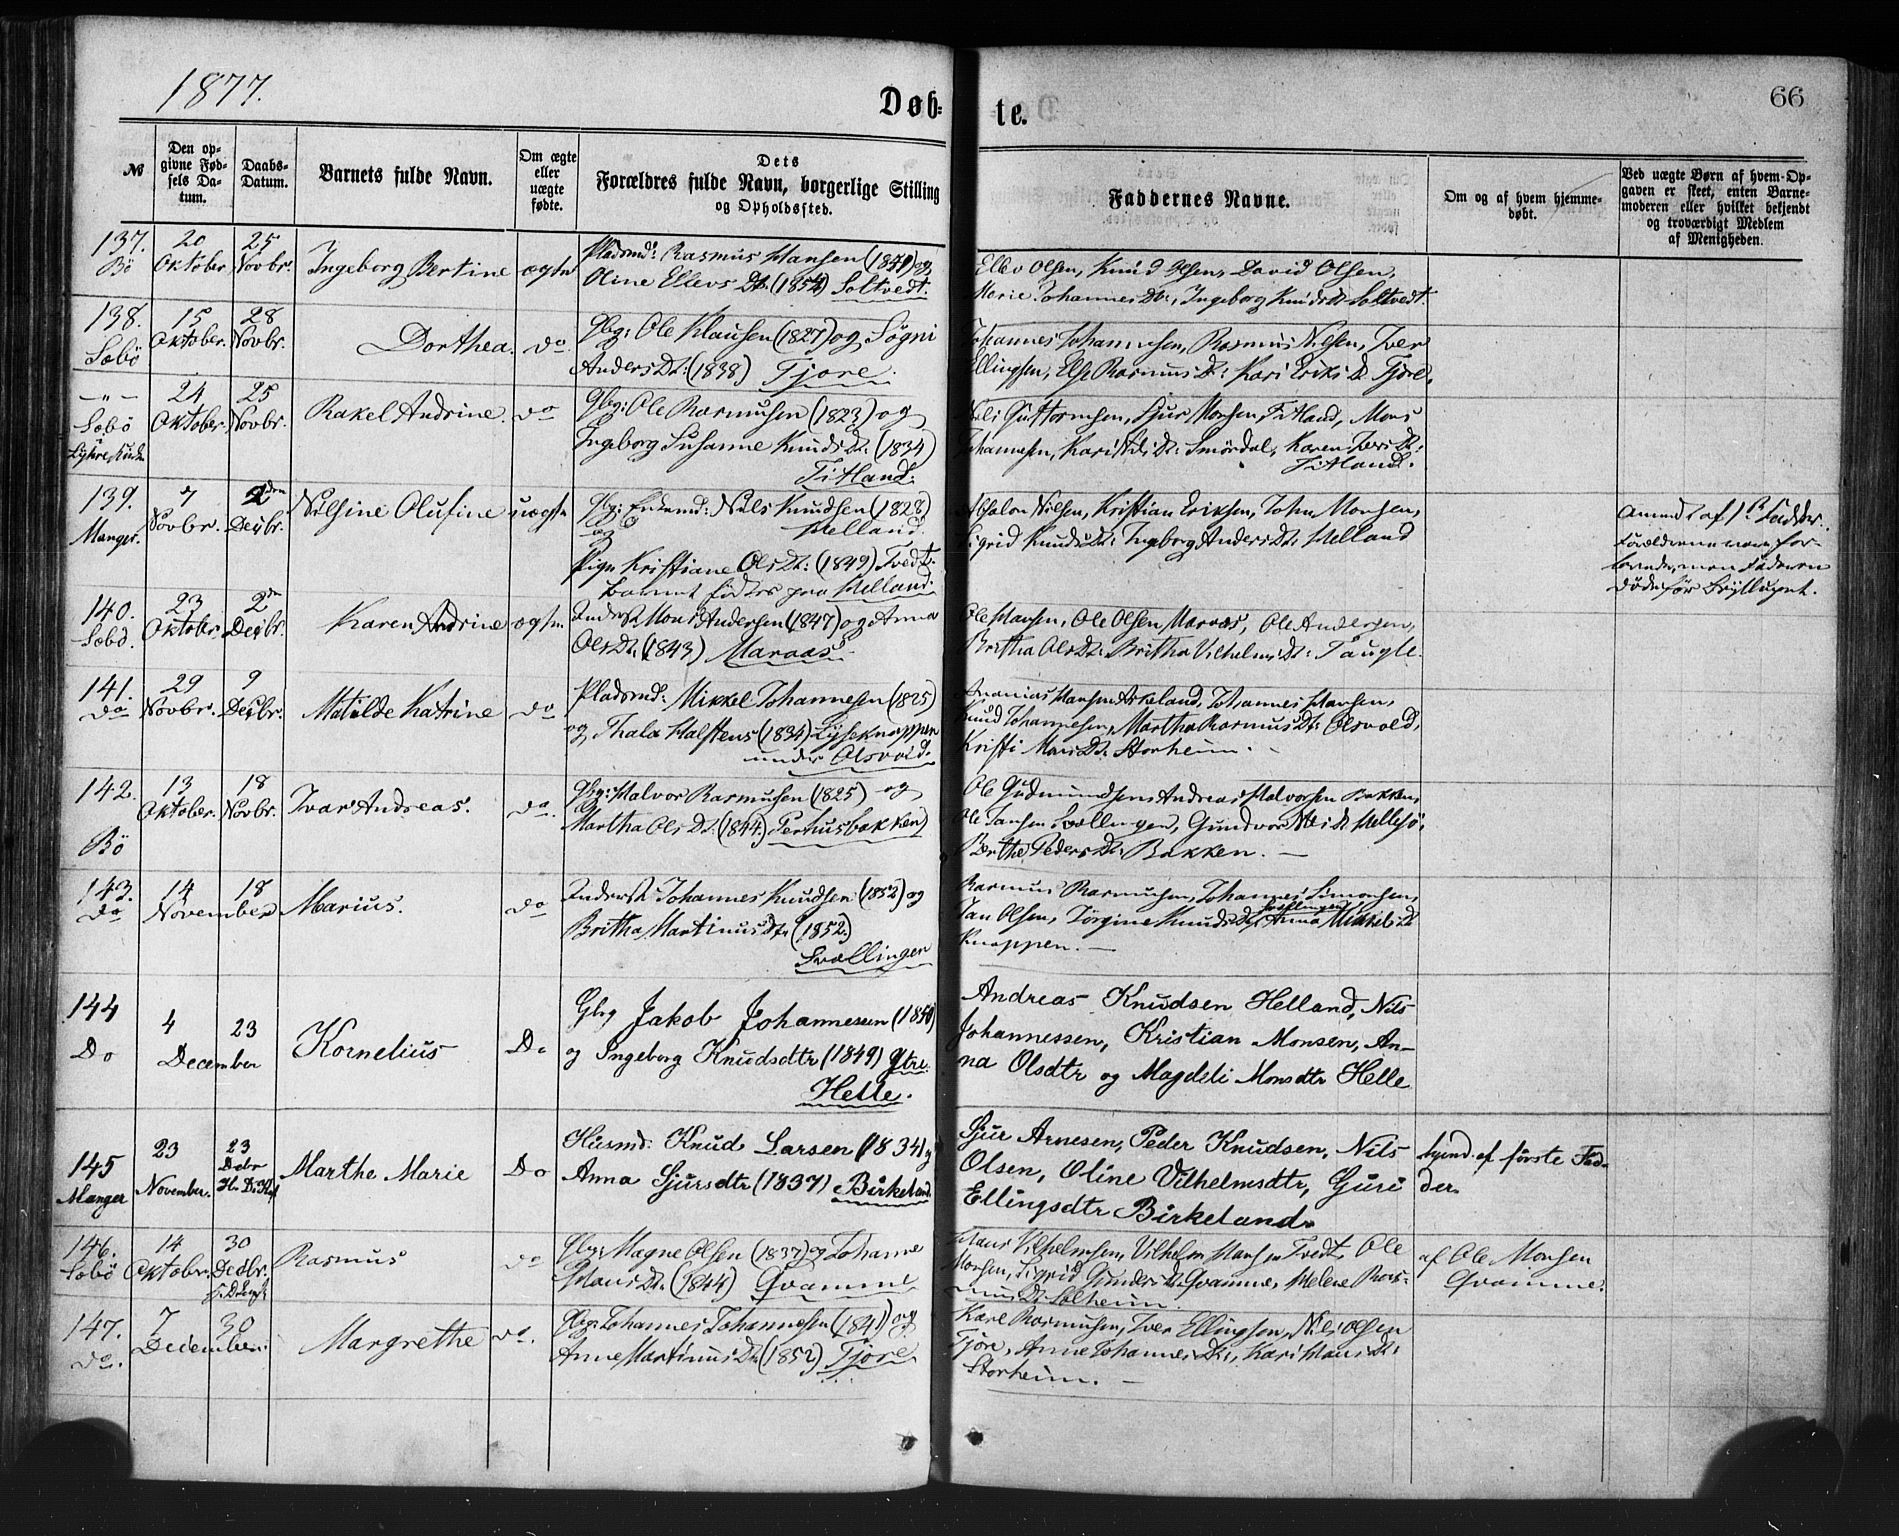 1877.
Døb-
te.
66
№
Den op-
givne Fød-
sels Da-
tum.
Daabs-
Datum.
Barnets fulde Navn.
Om ægte
eller
uægte
fødte.
Dets
Forældres fulde Navn, borgerlige Stilling
og Opholdssted.
Faddernes Navne.
Om og af hvem hjemme-
døbt.
Ved uægte Børn af hvem Op-
gaven er skeet, enten Barne-
moderen eller hvilket bekjendt
og troværdigt Medlem
af Menigheden.
137.
Bö
20
Oktober
25
Novbr.
Ingeborg Bertine
ægte
Pladsmd: Rasmus Hansen (1850) og
Oline Ellevs Dtr. (1854) Soltvedt.
Ellev Olsen, Knud Olsen, David Olsen,
Marie Johannes Dtr., Ingeborg Knuds Dtr Soltvedt.
138.
Sæbö
15
Oktober.
28
Novbr.
Dorthea.
do
Gbg: Ole Klausen (1827) og Sögni
Anders Dt: (1838) Fjore.
Johannes Johannesen, Rasmus Nilsen, Iver
Ellingsen, Else Rasmus Dt: Kari Eriks Dt Fjore.
— „ —
Sæbö
24
Oktober
25
Novbr.
Rakel Andrine.
do
Gbg: Ole Rasmusen (1823) og
Ingeborg Susanne Knuds Dt: (1834)
Titland.
Nils Guttormsen, Sjur Monsen, Titland, Mons
Johannesen, Kari Nils Dt: Smördal, Karen Ivers Dt:
Titland.
139.
Manger.
7
Novbr.
2den
Decbr.
Nilsine Olufine
uægte
Gbg: Enkemd: Nils Knudsen (1828)
og Helland.
Pige Kristiane Ols Dt: (1849) Tvedt.
Barnet födtes paa Helland.
Absalon Nilsen, Kristian Eriksen, John Monsen,
Sigrid Knuds Dt: Ingeborg Anders Dt: Helland
Anmeldt af 1ste Fadder.
Forældrene vare for-
lovede, men Faderen
döde för Brylluppet.
140.
Sæbö.
23
Oktober
2den
Decbr.
Karen Andrine
ægte.
Inderst Mons Andersen (1847) og Anna
Ols Dt. (1843) Maraas.
Ole Hansen, Ole Olsen Maraas, Ole Andersen,
Britha Ols Dt: Britha Vilhelms Dt: Taugle.
141.
do
29
Novbr.
9
Decbr.
Matilde Katrine
do
Pladsmd: Mikkel Johannesen (1825)
og Thala Halstens (1834) Lyseknappen
under Olsvold.
Ananias Hansen Askeland, Johannes Hansen,
Knud Johannesen, Martha Rasmus Dt: Olsvold,
Kristi Mons Dt. Storheim.
142.
Bö
13
Oktober.
18
Novbr.
Ivar Andreas.
do.
Gbg: Halvor Rasmusen (1825) og
Martha Ols Dt. (1844) Perhusbakken
Ole Gudmundsen, Andreas Halvorsen Bakken,
Ole Jansen Svellingen, Gundvor Nils Dt Hellesö,
Berthe Peders Dt: Bakken. —
143.
do
14
18
November
Marius.
do
Inderst: Johannes Knudsen (1852) og
Britha Martinus Dtr (1852.)
Svællingen
Rasmus Rasmusen, Johannes Simonsen,
Svellingen
Jan Olsen, Jörgine Knuds Dt, Anna Mikkels Dt
Knappen. —
144
Do
4
23
December
Kornelius
Do
Gbg Jakob Johannesen (1850)
og Ingeborg Knudsdtr (1849) Ytre
Helle.
Andreas Knudsen Helland, Nils
Johannessen, Kristian Monsen, An-
na Olsdtr og Magdeli Monsdtr Helle
145
Manger
23
November.
23
Debr
Marthe Marie
Do
Husmd. Knud Larsen (1834) og
Anna Sjursdtr (1837) Birkeland.
Sjur Arnesen, Peder Knudsen, Nils
Olsen, Oline Vilhelmsdtr, Guri
Ellingsdtr Birkeland.
hjemd. af förste Fad-
der.
146.
Sæbö
14
Oktober.
30
Decbr.
Rasmus
do
Gbg: Magne Olsen (1837) og Johanne
Hans Dt. (1844) Qvamme
Hans Vilhelmsen, Vilhelm Hansen Tvedt, Ole
Monsen, Sigrid Gunders Dt. Qvamme, Helene Ras-
mus Dt. Solheim.
af Ole Monsen
Qvamme.
147.
do.
7
30
December.
Margrethe
do.
Gbg: Johannes Johannesen (1841) og
Anne Martinus Dt. (1852) Fjore
Kare Rasmusen, Iver Ellingsen, Nils Olsen
Fjore, Anne Johannes Dt:, Kari Hans Dt:
Storheim. —